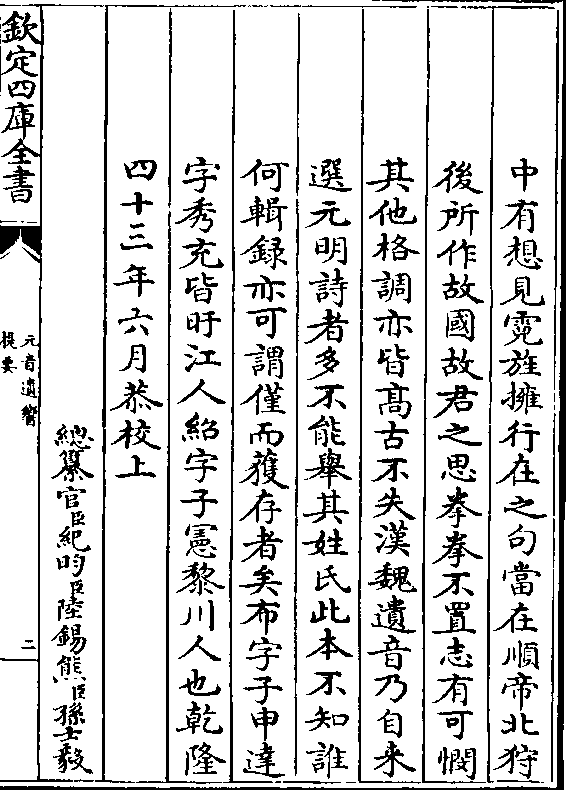 中有想見霓旌擁行在之句當在順帝北狩
後所作故國故君之思拳拳不置志有可憫
其他格調亦皆髙古不失漢魏遺音乃自来
選元明詩者多不能舉其姓氏此本不知誰
何輯録亦可謂僅而獲存者矣布字子申達
字秀充皆旴江人紹字子憲黎川人也乾隆
四十三年六月恭校上
總纂官臣紀昀臣陸錫熊臣孫士毅
欽定四庫全書
元音遺響
提要
二